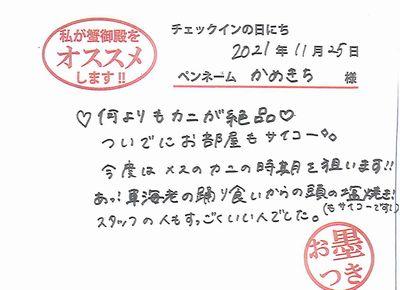 私が蟹御殿を
オススメ
します!!
チェックインの日にち
2021年11月25日
ペンネーム かめきち 様
♡何よりもカニが絶品♡
ついでにお部屋もサイコー。
今度はメスのカニの時期を狙います!!
あっ!車海老の踊り食いからの頭の塩焼き!
(もサイコーです!)
スタッフの人もすっごくいい人でした。
お墨
つき